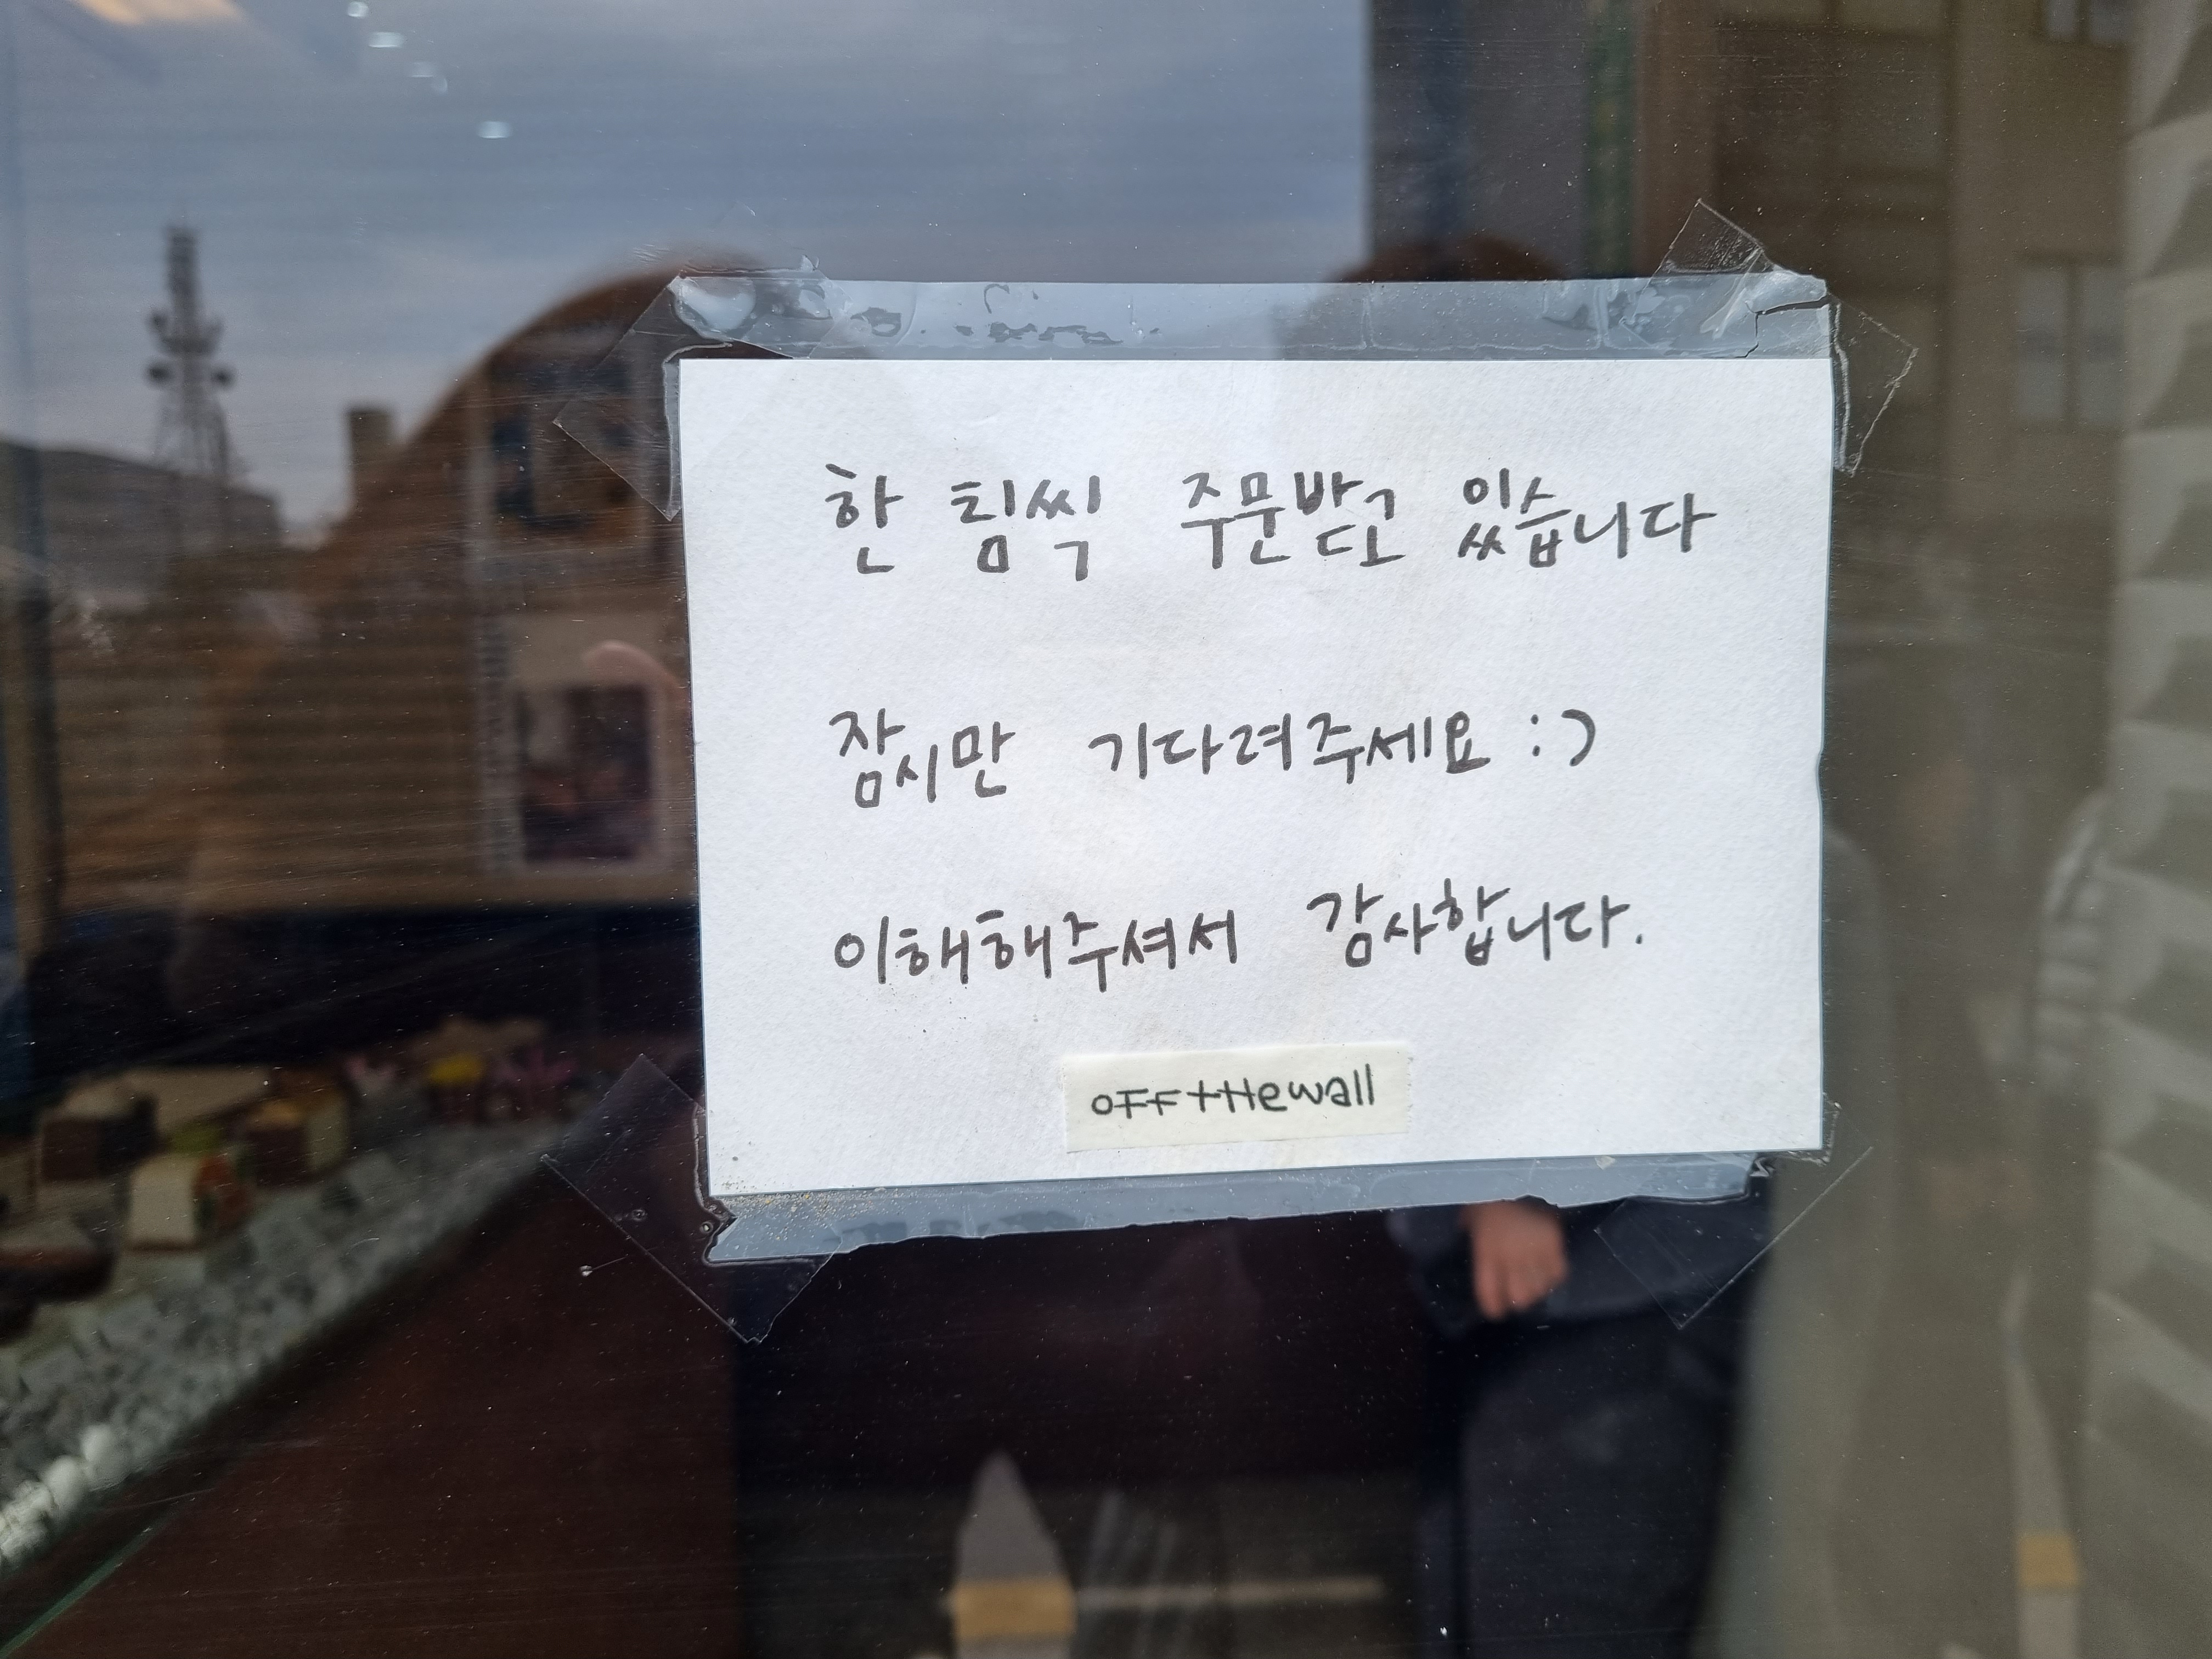 한 팀씩 주문받고 있습니다
잠시만 기다려주세요 :)
이해해주셔서 감사합니다.
OFFtHewall